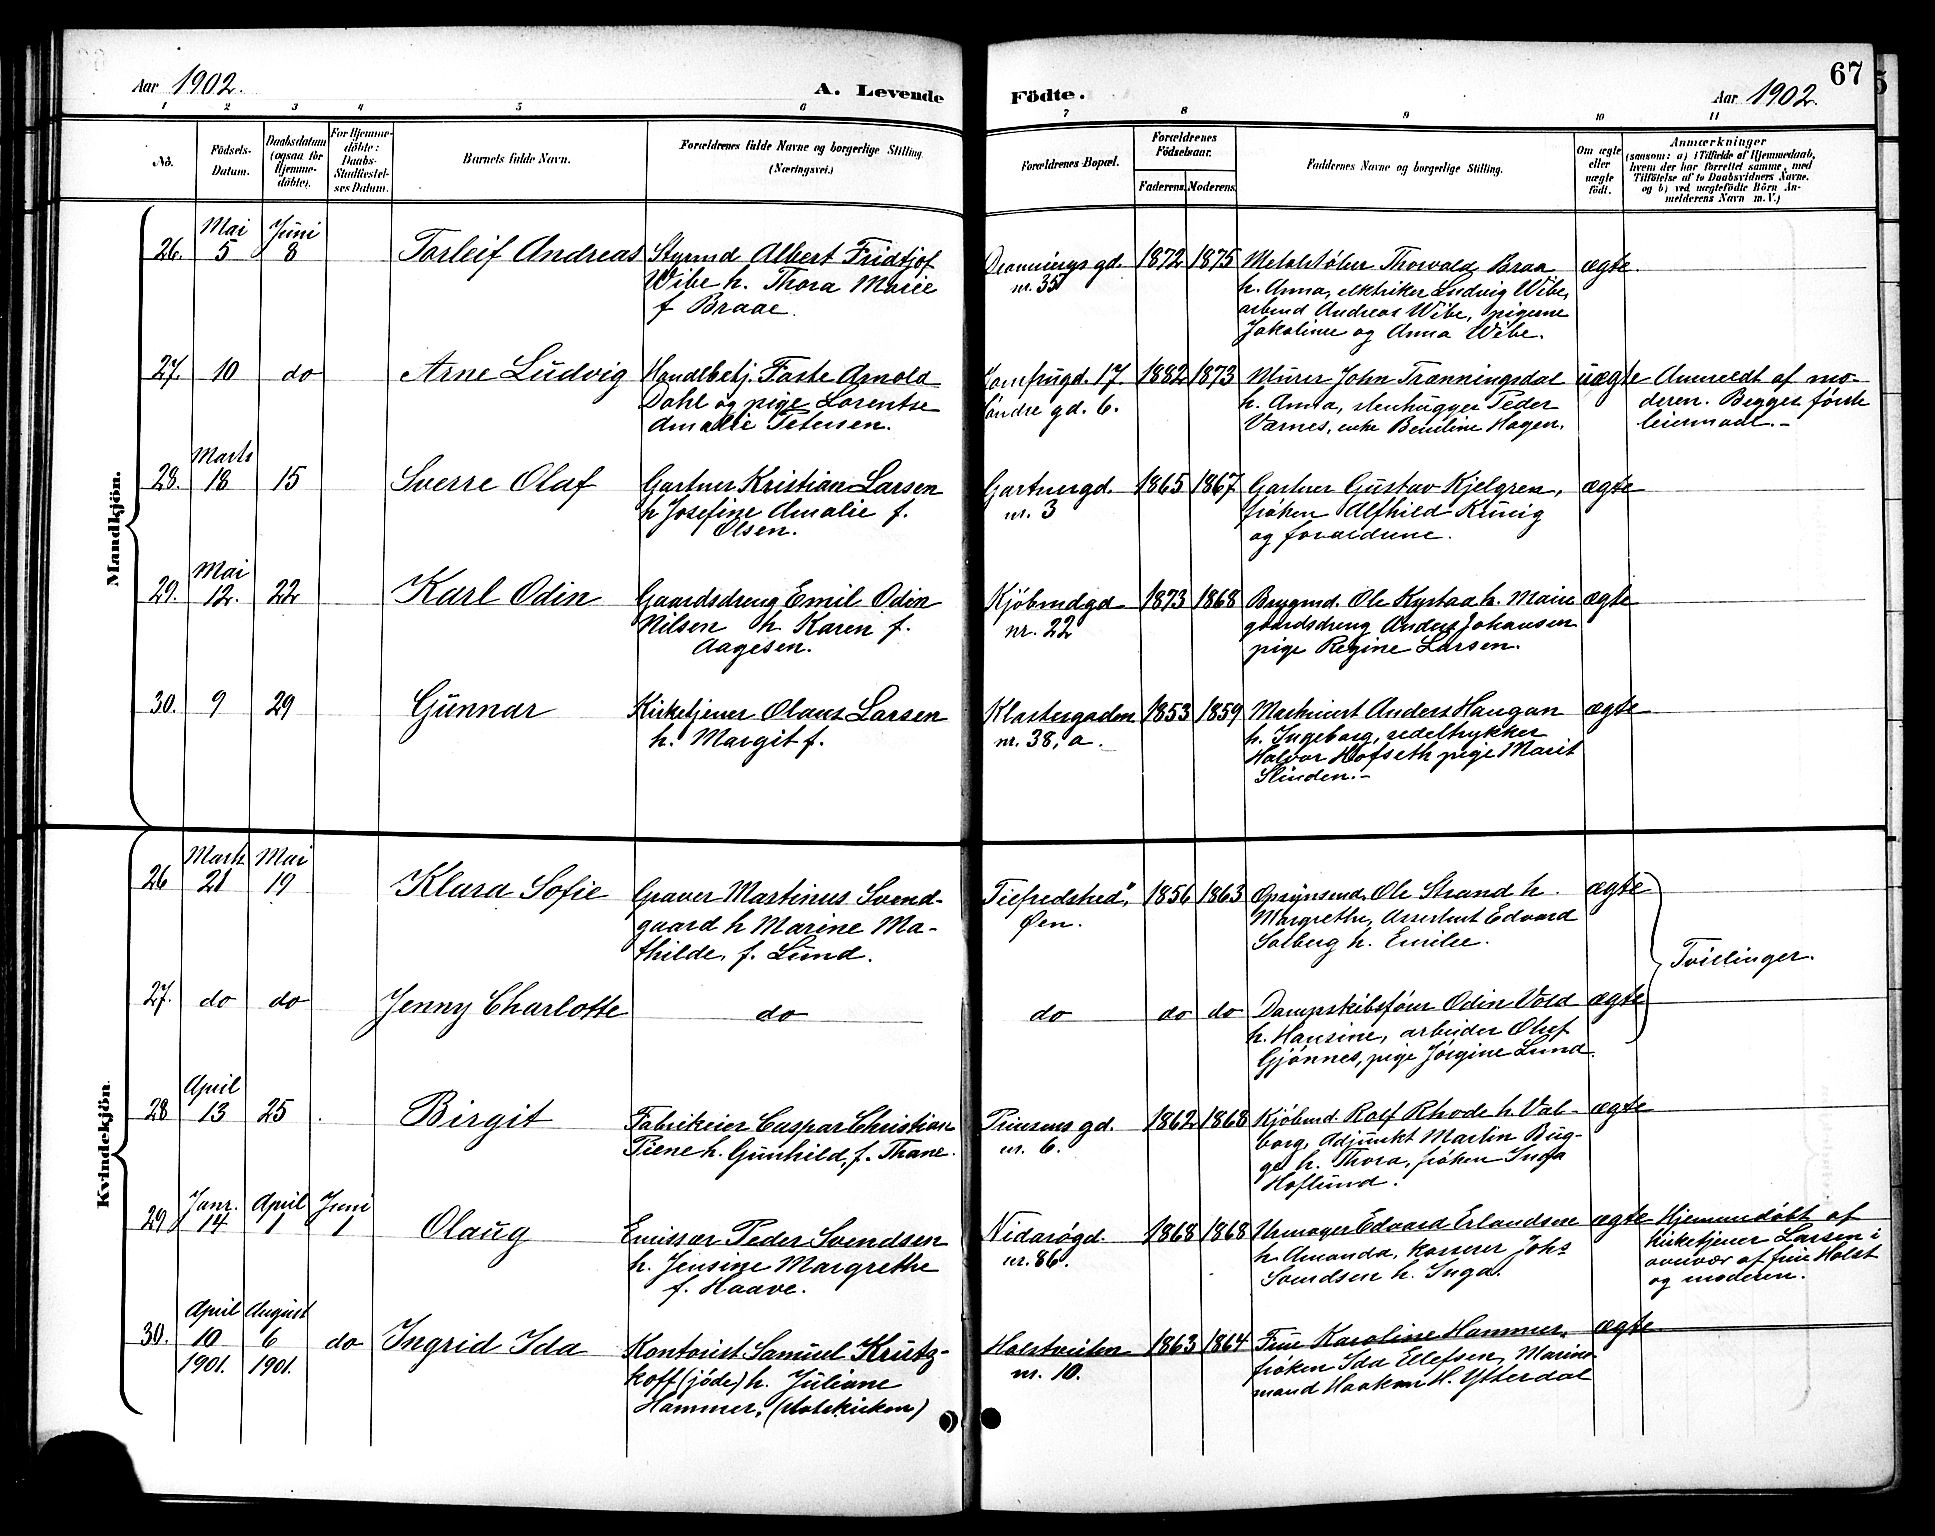 Aar 1902.
A. Levende
1 2 3 4 5 6
No.
Födsels-Datum.
Daabsdatum (ogsaa for Hjemme-döbte).
For Hjemme-döbte: Daabs-Stadfæstel-ses Datum.
Barnets fulde Navn.
Forældrenes fulde Navne og borgerlige Stilling (Næringsvei.)
Födte.
Aar 1902.
67
7 8 9 10 11
Forældrenes Bopæl.
Forældrenes Födselsaar.
Faderens. Moderens.
Faddernes Navne og borgerlige Stilling.
Om ægte eller uægte født.
Anmærkninger
(saasom: a) i Tilfælde af Hjemmedaab,
hvem der har forrettet samme, med
Tilföielse af to Daabsvidners Navne.
og b) ved uægtefödte Börn An-
melderens Navn m. V.)
Mandkjön.
26. Mai 5 Juni 8 Torleif Andreas
Styrmd Albert Fridtjof
Wibe h. Thora Marie
f Braae.
Dronningsgd. nr. 35
1872 1875
Metalstøber Thorvald Braa
h. Anna, elektriker Ludvig Wibe,
arbmd Andreas Wibe, pigerne
Jakoline og Anna Wibe.
ægte
27. 10 do Arne Ludvig
Handlbetj. Faste Arnold
Dahl og pige Lorentse
Amalie Petersen.
Jomfrugd. 17.
Søndre gd. 6.
1882 1873
Murer John Trønningsdal
h. Anna, stenhugger Peder
Værnes, enke Bendine Hagen.
uægte
Anmeldt af mo-
deren. Begges første
leiermaal.-
28. Marts 18 15 Sverre Olaf
Gartner Kristian Larsen
h Josefine Amalie f.
Olsen.
Gartnergd. nr. 3
1865 1867
Gartner Gustav Kjelgren,
frøken Alfhild Krünig
og forældrene.
ægte
29. Mai 12. 22 Karl Odin
Gaardsdreng Emil Odin
Nilsen h. Karen f.
Aagesen.
Kjøbmdgd nr. 22
1873 1868
Brygmd. Ole Kystaa h. Marie
gaardsdreng Anders Johansen
pige Regine Larsen.
ægte
30. 9 29 Gunnar
Kirketjener Olaus Larsen
h. Margit f.
Klostergaden nr. 38, a.
1853 1859
Maskinist Anders Haugan
h. Ingeborg, sedeltrykker
Halvor Hofseth pige Marit
Slinden.-
ægte
Kvindekjön.
26 Marts 21 Mai 19 Klara Sofie
Graver Martinus Svend-
gaard h Marine Ma-
thilde, f. Lund.
Tilfredshed" Øen.
1856 1863
Opsynsmd. Ole Strand h.
Margrethe, Assistent Edvard
Solberg h. Emilie.
ægte
Tvillinger.
27. do do Jenny Charlotte
do
do
do do
Dampskibsfører Odin Vold
h. Hansine, arbeider Oluf
Gjønnes, pige Jørgine Lund.
ægte
28 April 13 25 Birgit
Fabrikeier Caspar Christian
Piene h. Gunhild, f. Thane.
Prinsensgd. nr. 6.
1862 1868
Kjøbmd Rolf Rhode h Val-
borg, Adjunkt Martin Bug-
ge h. Thora, frøken Inga
Hoflund.
ægte
29 Janr. 14 April 1 Juni 1 Olaug
Emissær Peder Svendsen
h. Jensine Margrethe
f. Haave.
Nidarøgd. nr. 86.
1868 1868
Urmager Edvard Erlandsen
h. Amanda, kasserer Johs
Svendsen h. Inga.
ægte
Hjemmedøbt af
kirketjener Larsen i
overvær af frue Holst
og moderen.
30. April 10 1901. August 6 1901. do Ingrid Ida
Kontorist Samuel Krutz-
koff (jøde) h. Juliane
Hammer, (statskirken)
Holstveiten nr. 10.
1863 1864
Frue Karoline Hammer,
frøken Ida Ellefsen, Marine-
mand Haakon H. Ytterdal
ægte